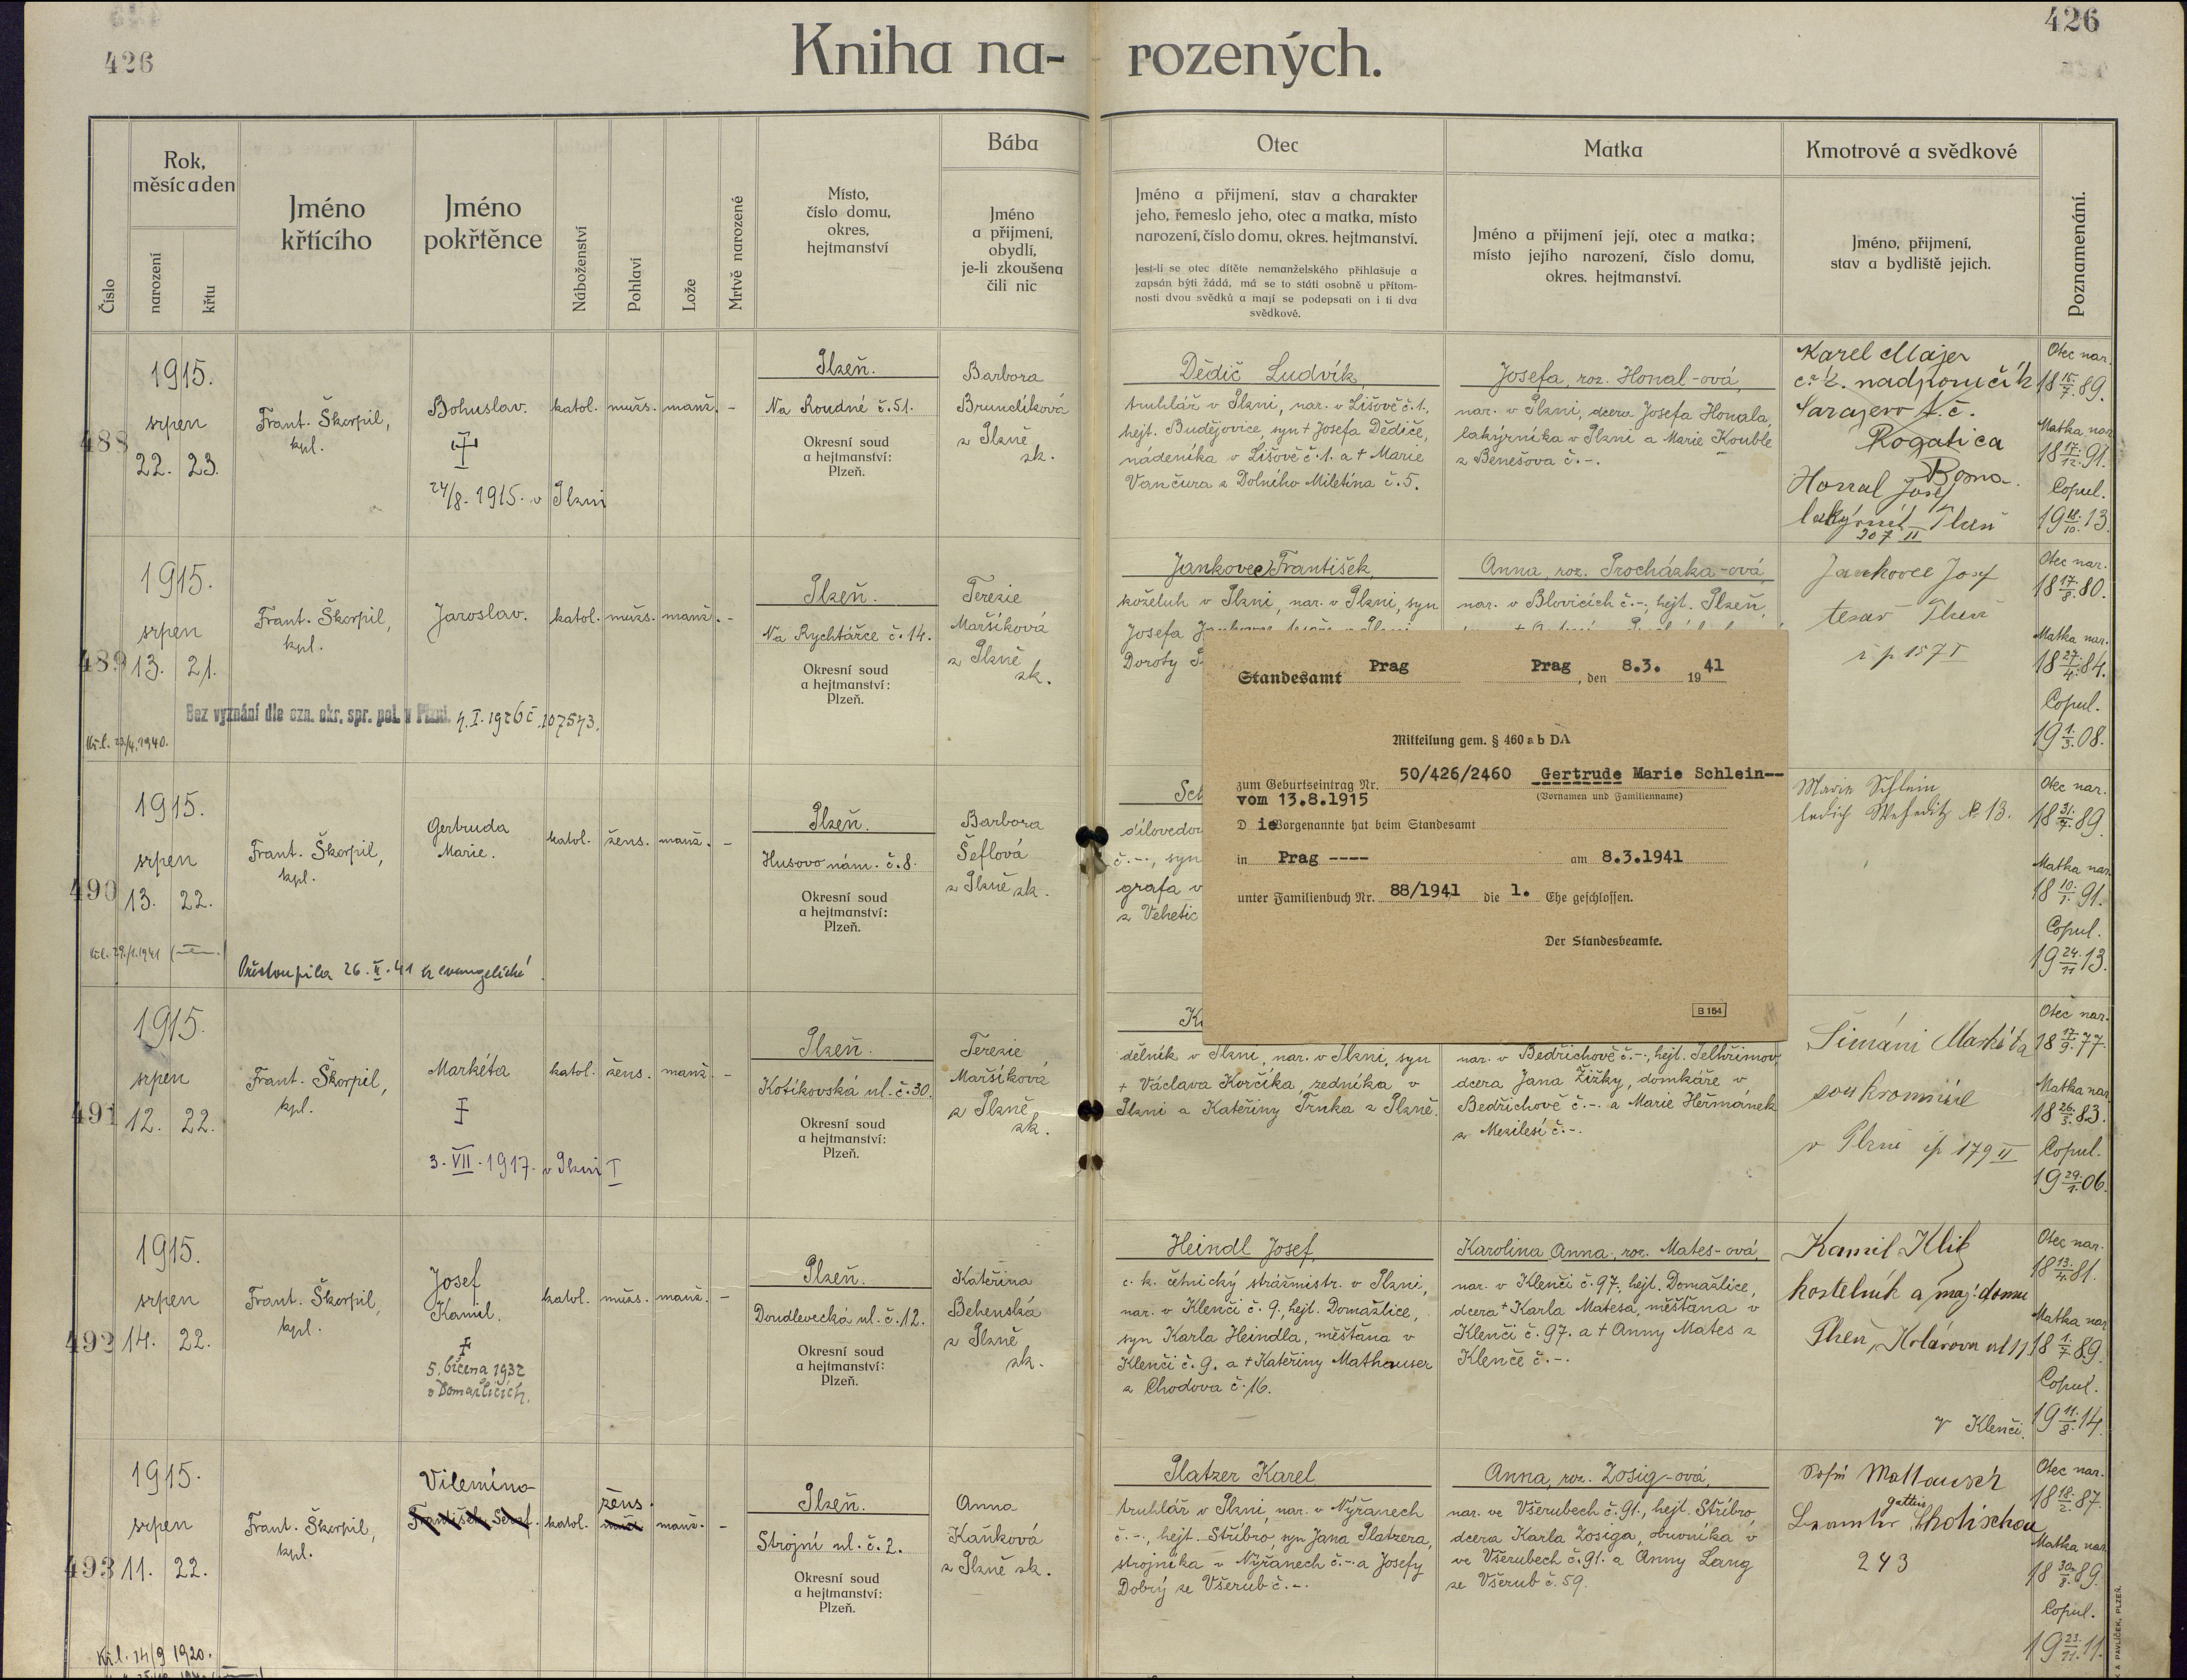 426
Kniha narozených.
426
Číslo
Rok, měsíc a den
narození
křtu
Jméno křtícího
Jméno pokřtěnce
Náboženství
Pohlaví
Lože
Mrtvě narozené
Místo,
číslo domu,
okres,
hejtmanství
Bába
Jméno
a přijmení,
obydlí,
je-li zkoušena
čili nic
Otec
Jméno a přijmení, stav a charakter
jeho, řemeslo jeho, otec a matka, místo
narození, číslo domu, okres. hejtmanství.
Jest-li se otec dítěte nemanželského přihlašuje a
zapsán býti žádá, má se to státi osobně u přítom-
nosti dvou svědků a mají se podepsati on i ti dva
svědkové.
Matka
Jméno a přijmení její, otec a matka;
místo jejího narození, číslo domu,
okres. hejtmanství.
Kmotrové a svědkové
Jméno, přijmení,
stav a bydliště jejich.
Poznamenání.
488
1915.
srpen
22. 23.
Frant. Škorpil,
kpl.
Bohuslav.
24/8. 1915. v Plzni
katol. mužs. manž. -
Plzeň.
Na Roudné č. 51.
Okresní soud
a hejtmanství:
Plzeň.
Barbora
Brunclíková
z Plzně
zk.
Dědič Ludvík,
truhlář v Plzni, nar. v Lišově č. 1.,
hejt. Budějovice, syn † Josefa Dědiče,
nádeníka v Lišově č. 1. a † Marie
Vančura z Dolního Miletína č. 5.
Josefa, roz. Honal-ová,
nar. v Plzni, dcera Josefa Honala,
lakýrníka v Plzni a Marie Kouble
z Benešova č. -.
Karel Majer
c. k. nadporučík
Sarajevo
Rogatica
Bosna.
Honal Josef
lakýrník Plzeň
207 II
Otec nar.
18 15./7. 89.
Matka nar.
18 17./12. 91.
Copul.
19 18./10. 13.
489
1915.
srpen
13. 21.
Frant. Škorpil,
kpl.
Jaroslav.
katol. mužs. manž. -
Plzeň.
Na Rychtářce č. 14.
Okresní soud
a hejtmanství:
Plzeň.
Terezie
Maršíková
z Plzně
zk.
Jankovec František,
koželuh v Plzni, nar. v Plzni, syn
Josefa
Doroty
Anna, roz. Procházka-ová,
nar. v Blovicích č. -, hejt. Plzeň,
Jankovec Josef
tesař Plzeň
č p 157 I
Otec nar.
18 17./8. 80.
Matka nar.
18 27./4. 84.
Copul.
19 1./3. 08.
Bez vyznání dle ozn. okr. spr. pol. v Plzni. 4. I. 1926 č. 107573.
Kř. l. 23/4. 1940.
490
1915.
srpen
13. 22.
Frant. Škorpil,
kpl.
Gertruda
Marie.
katol. žens. manž. -
Plzeň.
Husovo nám. č. 8.
Okresní soud
a hejtmanství:
Plzeň.
Barbora
Šeflová
z Plzně zk.
Sch
č. -, syn
grafa v
z Vehetic
Marie Schlein
ledig Weheditz № 13.
Otec nar.
18 31./7. 89.
Matka nar.
18 10./1. 91.
Copul.
19 24./11 13.
Přestoupila 26. II. 41 k evangelické
Standesamt Prag
Prag, den 8.3. 1941
Mitteilung gem. § 460 a b DA
zum Geburtseintrag Nr. 50/426/2460 Gertrude Marie Schlein--
vom 13.8.1915 (Vornamen und Familienname)
Die Vorgenannte hat beim Standesamt
in Prag ---- am 8.3.1941
unter Familienbuch Nr. 88/1941 die 1. Ehe geschlossen.
Der Standesbeamte.
B 154
491
1915.
srpen
12. 22.
Frant. Škorpil,
kpl.
Markéta
3. VII. 1917. v Plzni I
katol. žens. manž. -
Plzeň.
Kotíkovská ul. č. 30.
Okresní soud
a hejtmanství:
Plzeň.
Terezie
Maršíková
z Plzně
zk.
dělník v Plzni, nar. v Plzni, syn
† Václava Korčíka, zedníka v
Plzni a Kateřiny Trnka z Plzně.
nar. v Bedřichově č. -, hejt. Pelhřimov,
dcera Jana Žižky, domkáře v
Bedřichově č. -. a Marie Heřmánek
z Mezilesí č. -.
Markéta
v Plzni čp 179 II
Otec nar.
18 17./9. 77.
Matka nar.
18 26./3. 83.
Copul.
19 29./1. 06.
492
1915.
srpen
14. 22.
Frant. Škorpil,
kpl.
Josef
Kamil.
5. března 1932
v Domažlicích.
katol. mužs. manž. -
Plzeň.
Doudlevecká ul. č. 12.
Okresní soud
a hejtmanství:
Plzeň.
Kateřina
Behenská
z Plzně
zk.
Heindl Josef,
c. k. četnický strážmistr. v Plzni,
nar. v Klenčí č. 9., hejt. Domažlice,
syn Karla Heindla, měšťana v
Klenčí č. 9. a † Kateřiny Mathauser
z Chodova č. 16.
Karolina Anna, roz. Mates-ová,
nar. v Klenčí č. 97., hejt. Domažlice,
dcera † Karla Matesa, měšťana v
Klenčí č. 97. a † Anny Mates z
Klenče č. -.
Kamil Klik
kostelník a maj. domu
Plzeň, Kolárova ul 11
v Klenčí.
Otec nar.
18 13./4. 81.
Matka nar.
18 1./7. 89.
Copul.
19 11./8. 14.
493
1915.
srpen
11. 22.
Frant. Škorpil,
kpl.
Vilemína
František Seraf.
katol. žens. manž. -
Plzeň.
Strojní ul. č. 2.
Okresní soud
a hejtmanství:
Plzeň.
Anna
Kaňková
z Plzně zk.
Platzer Karel
truhlář v Plzni, nar. v Nýřanech
č. -, hejt. Stříbro, syn Jana Platzera,
strojníka v Nýřanech č. -. a Josefy
Dobrý ze Všerub č. -.
Anna, roz. Zosig-ová,
nar. ve Všerubech č. 91., hejt. Stříbro,
dcera Karla Zosiga, obuvníka v
ve Všerubech č. 91. a Anny Lang
ze Všerub č. 59.
Sofie Mattausch
Beamter gattin Chotischau
243
Otec nar.
18 18./2. 87.
Matka nar.
18 30./8. 89.
Copul.
19 23./11. 11.
Kř. l. 14/9 1920.